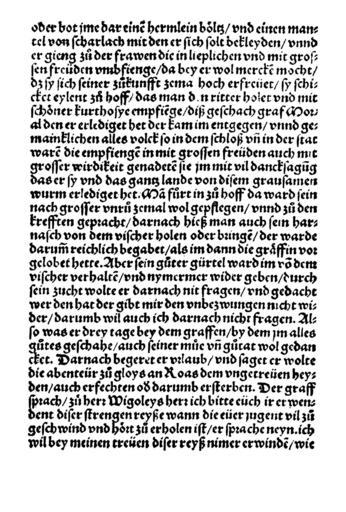 oder bot jme dar einē hermlein bőltz/vnd einen man⸗
tel von scharlach mit den er sich solt bekleyden/vnnd
er gieng zů der frawen die in lieplichen vnd mit gros⸗
sen freüden vmbfienge/da bey er wol mercke mocht/
dz sy sich seiner zůkunfft zema hoch erfreüet/sy schi⸗
cket eylent zů hoff/das man d n ritter holet vnd mit
schőner kurthosye empfiege/diß geschach graf Mor
al den er erlediget het der kam im entgegen/vnnd ge⸗
mainklichen alles volck so in dem schloß vñ in der stat
warē die empfiengē in mit grossen freüden auch mit
grosser wirdikeit genadetē sie jm mit vil dancksagūg
das er sy vnd das gantz lande von disem grausamen
wurm erlediget het. Mā fůrt in zů hoff da ward sein
nach grosser vnrů zemal wol gepflegen/vnnd zů den
krefften gepracht/darnach hieß man auch sein har⸗
nasch von dem vischer holen oder bringē/der warde
darumb reichlich begabet/als im dann die gräffin vor
gelobet hette. Aber sein gůter gürtel ward im vō dem
vischer verhaltē/vnd nymermer wider geben/durch
sein zucht wolte er darnach nit fragen/vnd gedacht
wer den hat der gibt mir den vnbezwungen nicht wi⸗
der/darumb wil auch ich darnach nicht fragen. Al⸗
so was er drey tage bey dem graffen/by dem jm alles
gůtes geschahe/auch seiner müe vñ gůtat wol gedan
cket. Darnach begeret er vrlaub/vnd saget er wolte
die abenteür zů gloys an Roas dem vngetreüen hey⸗
den/auch erfechten ob darumb ersterben. Der graff
sprach/zů herr Wigoleys herr ich bitte eüch ir er wen⸗
dent diser strengen reyße wann die eüer jugent vil zů
geschwind vnd hört zů erholen ist/er sprache neyn.ich
wil bey meinen treüen diser reyß nimer erwindē/wie